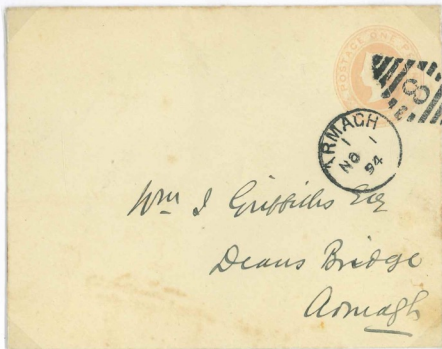 POSTAGE ONE
8
ARMAGH
1
NO 1
94
Wm I Griffiths Esq
Deans Bridge
Armagh